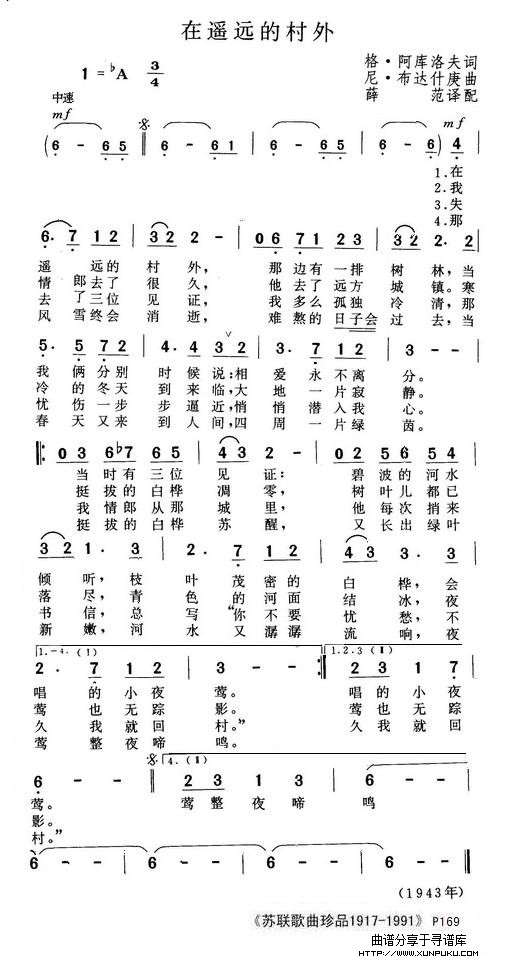 在遥远的村外
1=♭A 3/4
格·阿库洛夫词
尼·布达什庚曲
薛 范译配
中速
mf
(6 - 65 ‖ 6 - 61 | 6 - 65 | 6 - 6) 4 |
mf
1.在
2.我
3.失
4.那
6· 7 12 | 32 2 - | 06 71 23 | 32 2· 2 |
遥 远的 村 外, 那边有一排 树 林,当
情 郎去了 很 久, 他去了远方 城 镇。寒
去 了三位 见 证, 我多么孤独 冷 清,那
风 雪终会 消 逝, 难熬的日子会 过 去,当
5· 5 72 | 4· 4 32 | 3· 7 12 | 3 - - |
我 俩分别 时 候说:相 爱 永不离 分。
冷 的冬天 到 来临,大 地 一片寂 静。
忧 伤一步 步 逼近,悄 悄 潜入我 心。
春 天又来 到 人间,四 周 一片绿 茵。
03 6♭7 65 | 43 2 - | 02 65 54 |
当时有三位 见 证: 碧波的河水
挺拔的白桦 凋 零, 树叶儿都已
我情郎从那 城 里, 他每次捎来
挺拔的白桦 苏 醒, 又长出绿叶
32 1· 3 | 2· 7 12 | 43 3· 3 |
倾 听,枝 叶 茂密的 白 桦,会
落 尽,青 色 的河面 结 冰,夜
书 信,总 写 “你不要 忧 愁,不
新 嫩,河 水 又潺潺 流 响,夜
1.-4.(1) 1.2.3(1)
2· 7 12 | 3 - - :‖ 23 1 7 |
唱 的小夜 莺。 唱的小夜
莺 也无踪 影。 莺也无踪
久 我就回 村。” 久我就回
莺 整夜啼 鸣。
4.(1)
6 - - | 23 1 3 | 6 - - |
莺。 莺整夜啼 鸣
影。
村。”
6 - - | 6 - - | 6 - - | 6 - - ‖
(1943年)
《苏联歌曲珍品1917-1991》 P169
曲谱分享于寻谱库
HTTP://WWW.XUNPUKU.COM